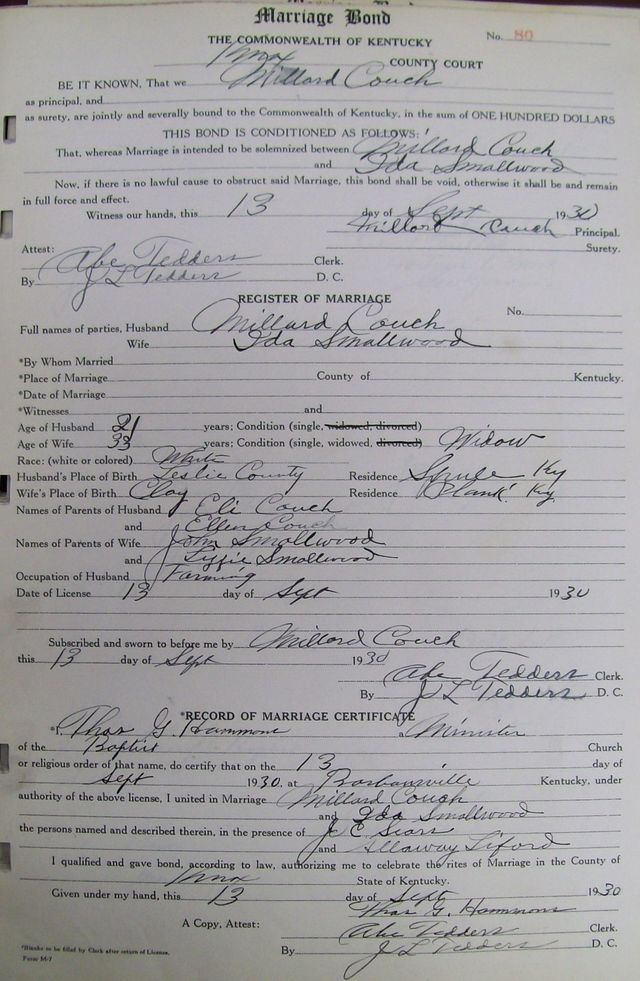 Marriage Bond
No. 80
THE COMMONWEALTH OF KENTUCKY
Knox COUNTY COURT
BE IT KNOWN, That we Millard Couch
as principal, and
as surety, are jointly and severally bound to the Commonwealth of Kentucky, in the sum of ONE HUNDRED DOLLARS
THIS BOND IS CONDITIONED AS FOLLOWS:
That, whereas Marriage is intended to be solemnized between Millard Couch
and Ida Smallwood
Now, if there is no lawful cause to obstruct said Marriage, this bond shall be void, otherwise it shall be and remain
in full force and effect.
Witness our hands, this 13 day of Sept 1930
Millard Couch Principal.
Surety.
Attest:
Abe Tedders Clerk.
By J L Tedders D. C.
REGISTER OF MARRIAGE
No.
Full names of parties, Husband Millard Couch
Wife Ida Smallwood
*By Whom Married
*Place of Marriage County of Kentucky.
*Date of Marriage
*Witnesses and
Age of Husband 21 years; Condition (single, widowed, divorced)
Age of Wife 33 years; Condition (single, widowed, divorced) Widow
Race: (white or colored) White
Husband's Place of Birth Leslie County Residence Spruce Ky
Wife's Place of Birth Clay Residence Blank Ky
Names of Parents of Husband Eli Couch
and Ellen Couch
Names of Parents of Wife John Smallwood
and Smallwood
Occupation of Husband Farming
Date of License 13 day of Sept 1930
Subscribed and sworn to before me by Millard Couch
this 13 day of Sept 1930
Abe Tedders Clerk.
By J L Tedders D. C.
*RECORD OF MARRIAGE CERTIFICATE
*I, Thos G. Hammons a Minister
of the Baptist Church
or religious order of that name, do certify that on the 13 day of
Sept 1930, at Barbourville Kentucky, under
authority of the above license, I united in Marriage Millard Couch
and Ida Smallwood
the persons named and described therein, in the presence of J. C. Sears
and
I qualified and gave bond, according to law, authorizing me to celebrate the rites of Marriage in the County of
Knox State of Kentucky.
Given under my hand, this 13 day of Sept 1930
Thos G. Hammons
A Copy, Attest: Abe Tedders Clerk.
By J L Tedders D. C.
*Blanks to be filled by Clerk after return of License.
Form M-7